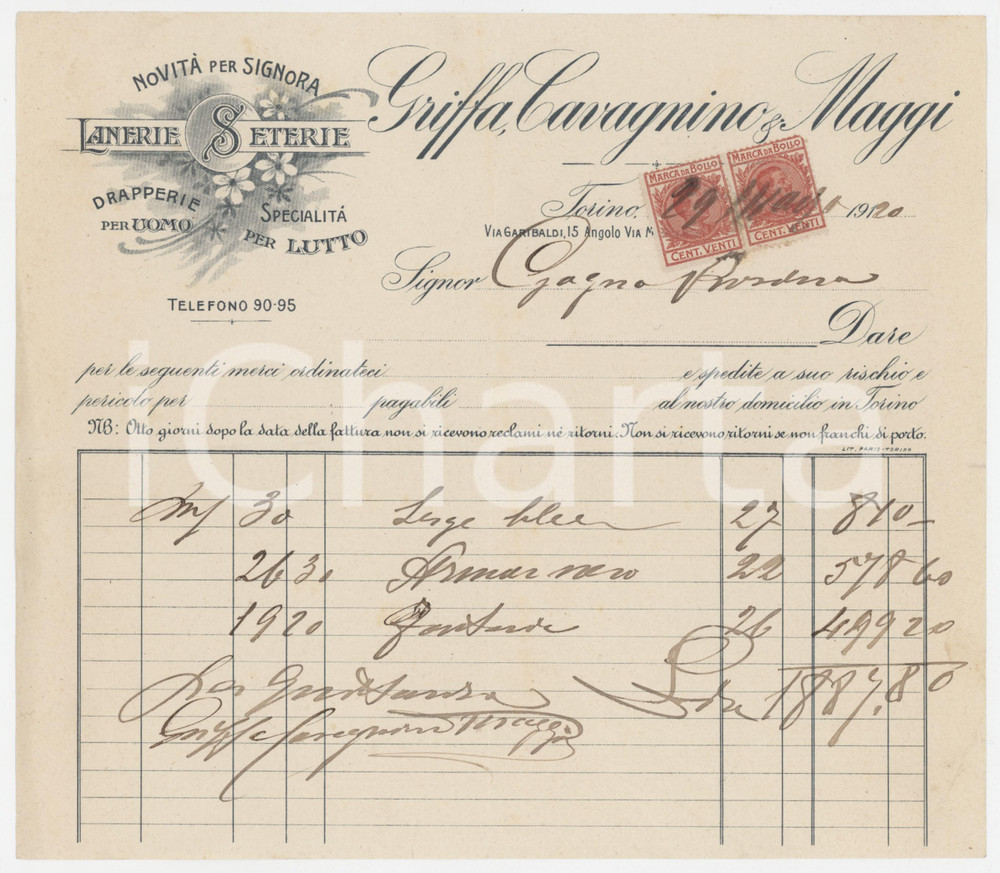 NOVITÀ PER SIGNORA
LANERIE SETERIE
DRAPPERIE
PER UOMO
SPECIALITÁ
PER LUTTO
TELEFONO 90-95
Griffa, Cavagnino & Maggi
MARCA DA BOLLO
CENT. VENTI
MARCA DA BOLLO
CENT. VENTI
Torino, 29 1920
VIA GARIBALDI, 15 Angolo VIA M
Signor Gagna
Dare
per le seguenti merci ordinateci e spedite a suo rischio e
pericolo per pagabili al nostro domicilio in Torino
NB: Otto giorni dopo la data della fattura non si ricevono reclami nè ritorni. Non si ricevono ritorni se non franchi di porto.
LIT. PARIS-TORINO
iCharta
M/ 30 Serge bleu 27 810 -
26 30 nero 22 578 60
19 20 Fantasia 26 499 20
1887,80
Per Quietanza
Griffa Cavagnino Maggi